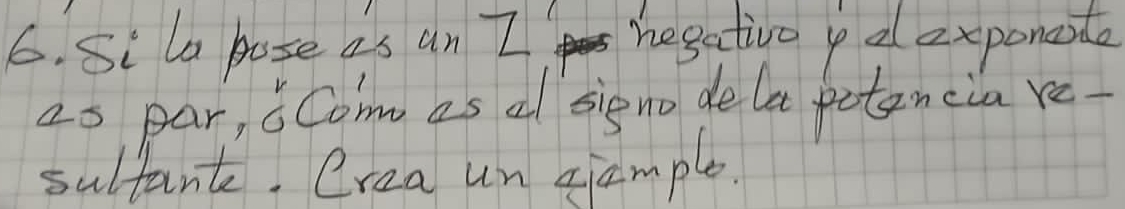 6. Si la base es un Z negativo y el exponente
es par, ¿Cómo es el signo de la potencia re-
sultante. Crea un ejemplo.